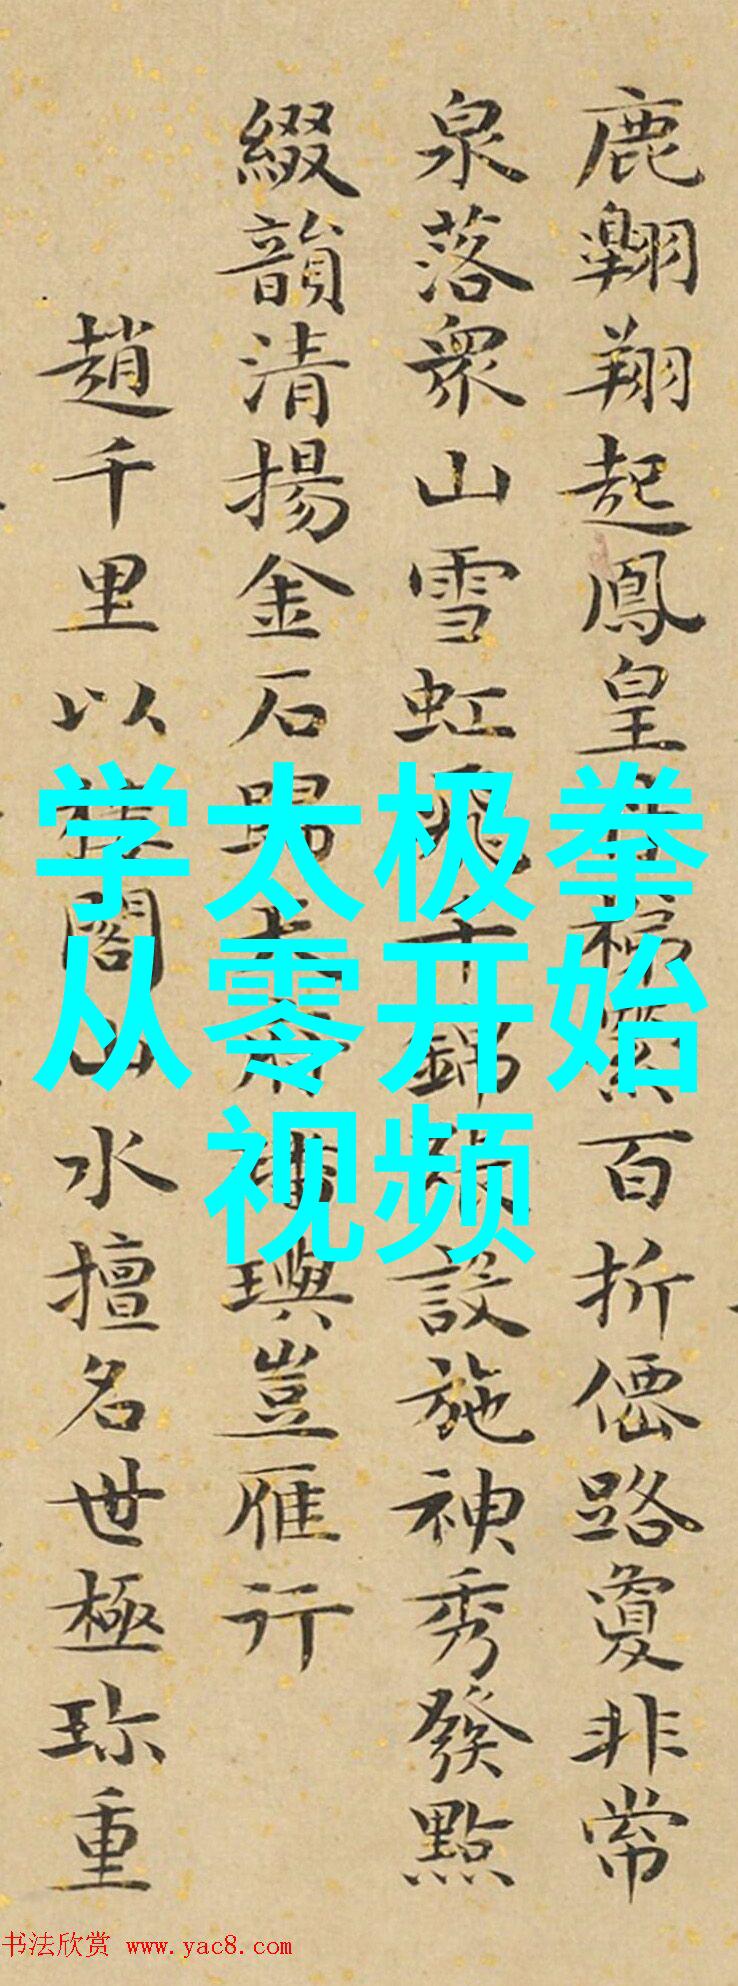 鹿翱翔起鳳皇
百折僊路敻非常
泉落衆山雪虹飛千
錦
設施神秀發點
綴韻清揚金石
璵豈雁行
趙千里以
閣山水擅名世極珎重
学太极拳
从零开始
视频
书法欣赏 www.yac8.com